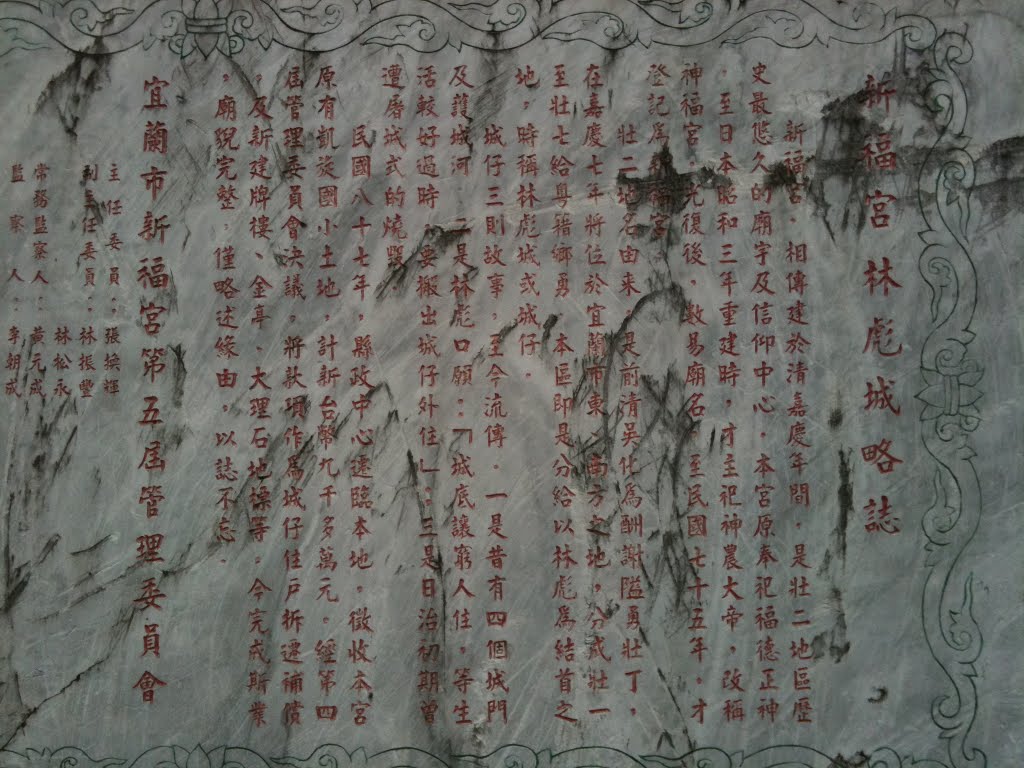 新福宮林彪城略誌
新福宮，相傳建於清嘉慶年間，是壯二地區歷
史最悠久的廟宇及信仰中心．本宮原奉祀福德正神
，至日本昭和三年重建時，才主祀神農大帝，改稱
神福宮，光復後，數易廟名，至民國七十五年，才
登記為新福宮
壯二地名由來，是前清吳化為酬謝隘勇壯丁，
在嘉慶七年將位於宜蘭市東、南方之地，分或壯一
至壯七給粵籍鄉勇，本區即是分給以林彪為結首之
地，時稱林彪城或城仔．
城仔三則故事，至今流傳．一是昔有四個城門
及護城河，二是林彪口願：「城底讓窮人住，等生
活較好過時，要搬出城仔外住」；三是日治初期曾
遭磨城式的燒
民國八十七年，縣政中心遷臨本地，徵收本宮
原有凱旋國小土地，計新台幣九千多萬元．經第四
屆管理委員會決議，將款項作為城仔住戶拆遷補償
，及新建牌樓、金亭、大理石地樣等．今完成斯業
，廟貌完整，僅略述緣由，以誌不忘．
宜蘭市新福宮第五屆管理委員會
主任委員：張換輝
副主任委員：林振豐
林松永
常務監察人：黃元成
監察人：李朝成